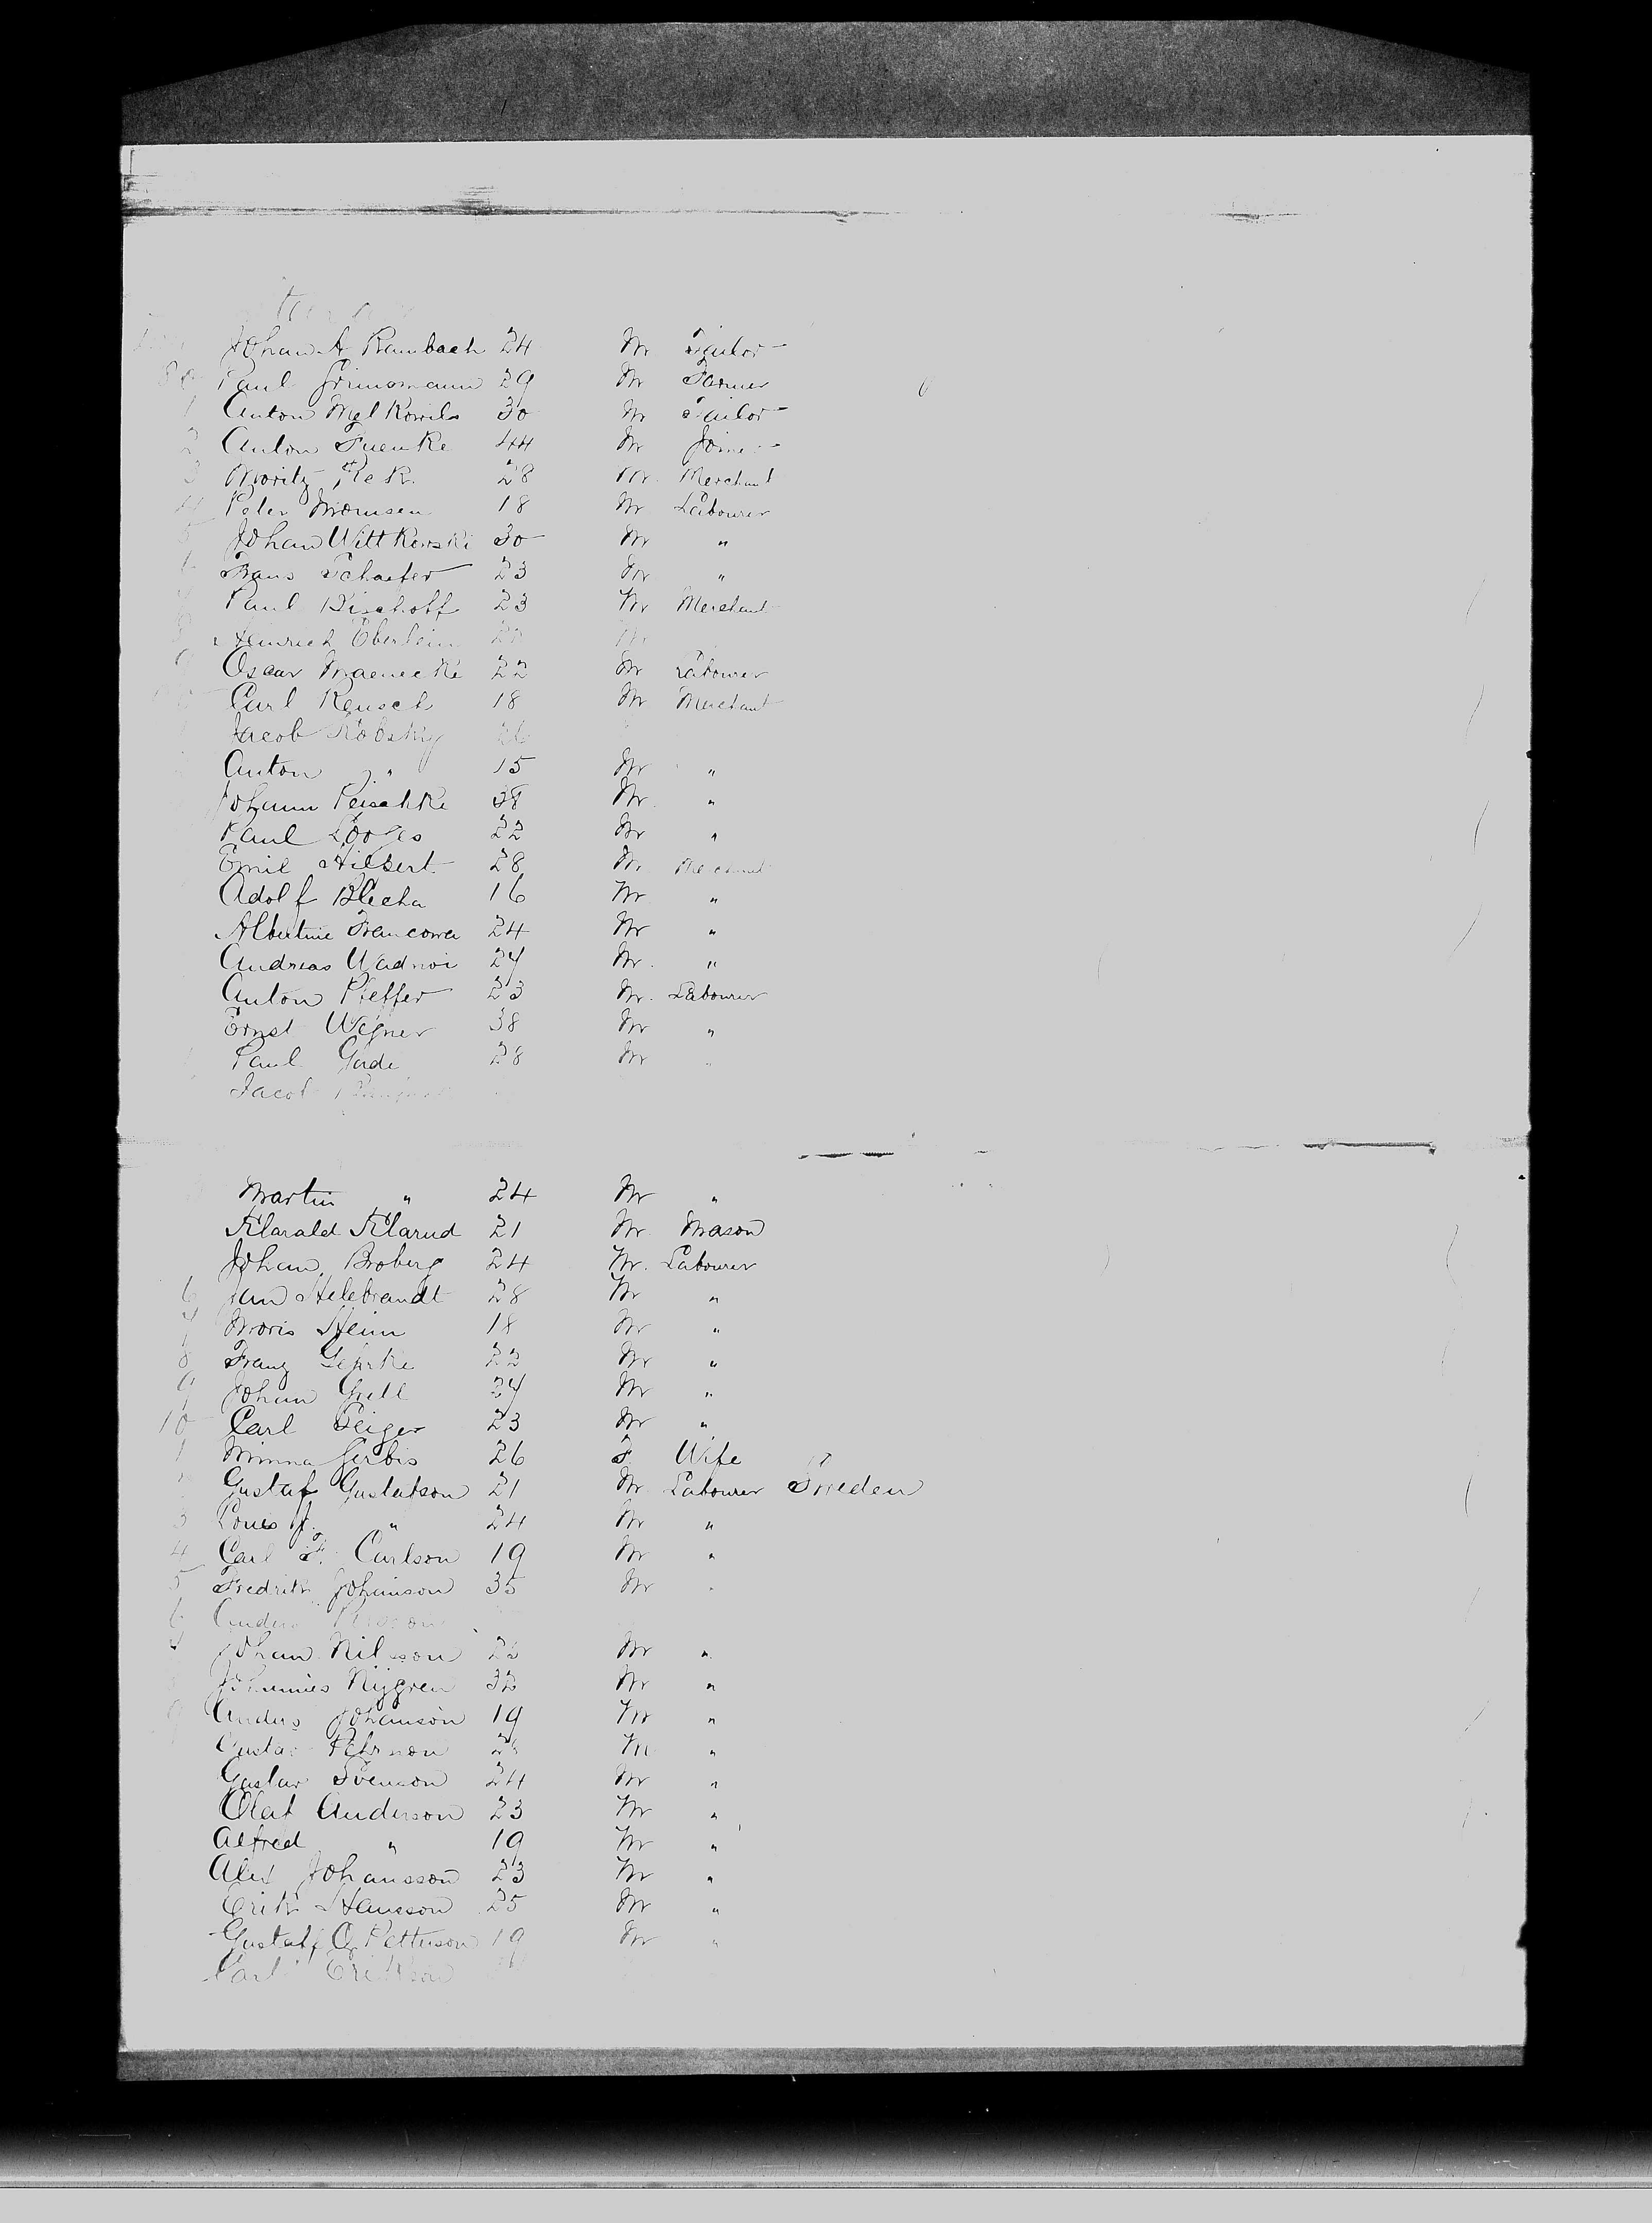 Johan A Rambach 24 M Tailor
80 Paul Grinsmann 29 M Farmer
1 Anton 30 M Tailor
2 Anton Fuenke 44 M Joiner
3 Moritz Pick 28 M Merchant
4 Peter Momsen 18 M Labourer
5 Johan Wittkowski 30 M "
6 Frans Schaefer 23 M "
Paul Bischoff 23 M Merchant
8 Heinrich Eberlein M
9 Oscar Maenecke 22 M Labourer
Carl Reusch 18 M Merchant
Jacob 26
Anton " 15 M "
Johann Peischke 38 M "
Paul Lorges 22 M "
Emil Hilbert 28 M Merchant
Adolf Blecha 16 M "
Albertine Francowa 24 M "
Andreas Wadnoi 24 M "
Anton Pfeffer 23 M Labourer
Ernst Wegner 38 M "
Paul Gade 28 M "
Jacob
Martin " 24 M "
Klarald Klarud 21 M Mason
Johan Broberg 24 M Labourer
6 Jan Hilebrandt 28 M "
7 Moris Stein 18 M "
8 Franz Gehrke 22 M "
9 Johan Grell 24 M "
10 Carl Geiger 23 M "
1 Minna Gerbis 26 F Wife
Gustaf Gustafson 21 M Labourer Sweden
3 Louis J. " 24 M "
4 Carl F. Carlson 19 M "
5 Fredrik Johanson 35 M "
6 Anders
7 Johan Nilsson 22 M "
Johannes Nygren 32 M "
9 Anders Johanson 19 M "
Gustav Pehrson M "
Gustav Svenson 24 M "
Olaf Anderson 23 M "
Alfred " 19 M "
Alex Johansson 23 M "
Erik Hansson 25 M "
Gustaf O Petterson 19 M "
Carl Erikson